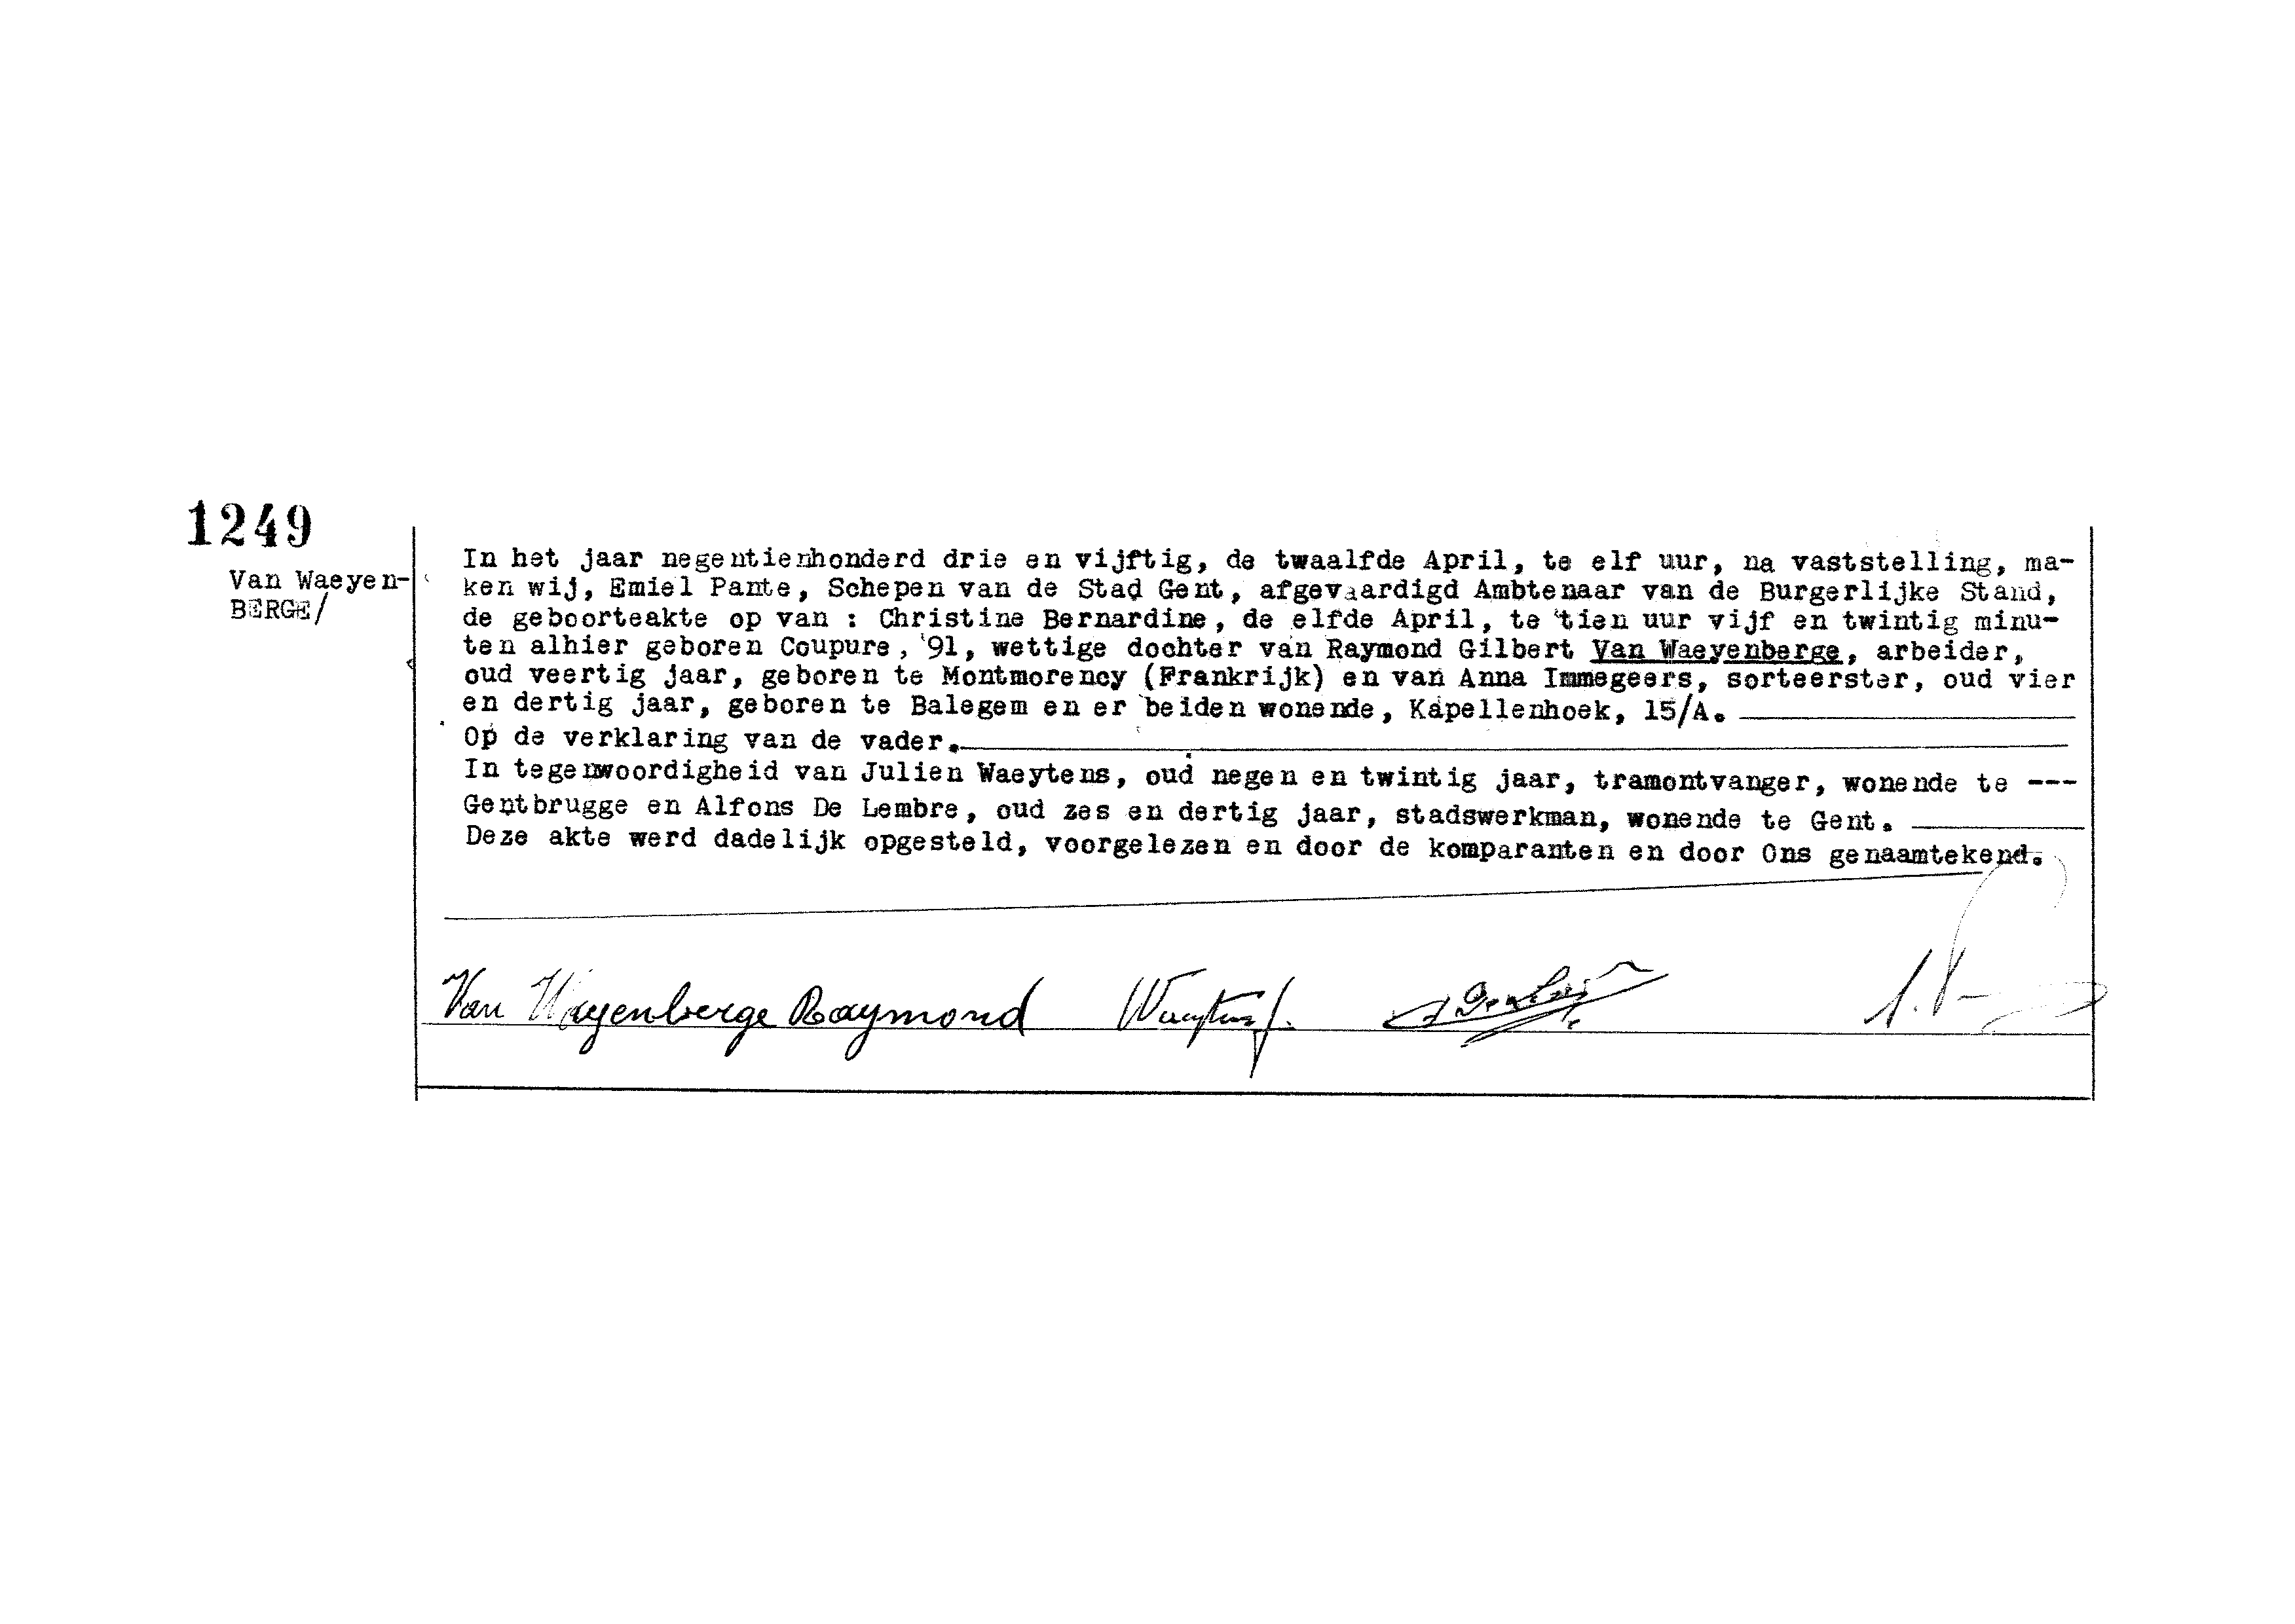 1249
Van Waeyen-
BERGE/
In het jaar negentienhonderd drie en vijftig, de twaalfde April, te elf uur, na vaststelling, ma-
ken wij, Emiel Pante, Schepen van de Stad Gent, afgevaardigd Ambtenaar van de Burgerlijke Stand,
de geboorteakte op van : Christine Bernardine, de elfde April, te tien uur vijf en twintig minu-
ten alhier geboren Coupure, 91, wettige dochter van Raymond Gilbert Van Waeyenberge, arbeider,
oud veertig jaar, geboren te Montmorency (Frankrijk) en van Anna Immegeers, sorteerster, oud vier
en dertig jaar, geboren te Balegem en er beiden wonende, Kapellenhoek, 15/A.
Op de verklaring van de vader.
In tegenwoordigheid van Julien Waeytens, oud negen en twintig jaar, tramontvanger, wonende te ---
Gentbrugge en Alfons De Lembre, oud zes en dertig jaar, stadswerkman, wonende te Gent.
Deze akte werd dadelijk opgesteld, voorgelezen en door de komparanten en door Ons genaamtekend.
Van Wayenberge Raymond